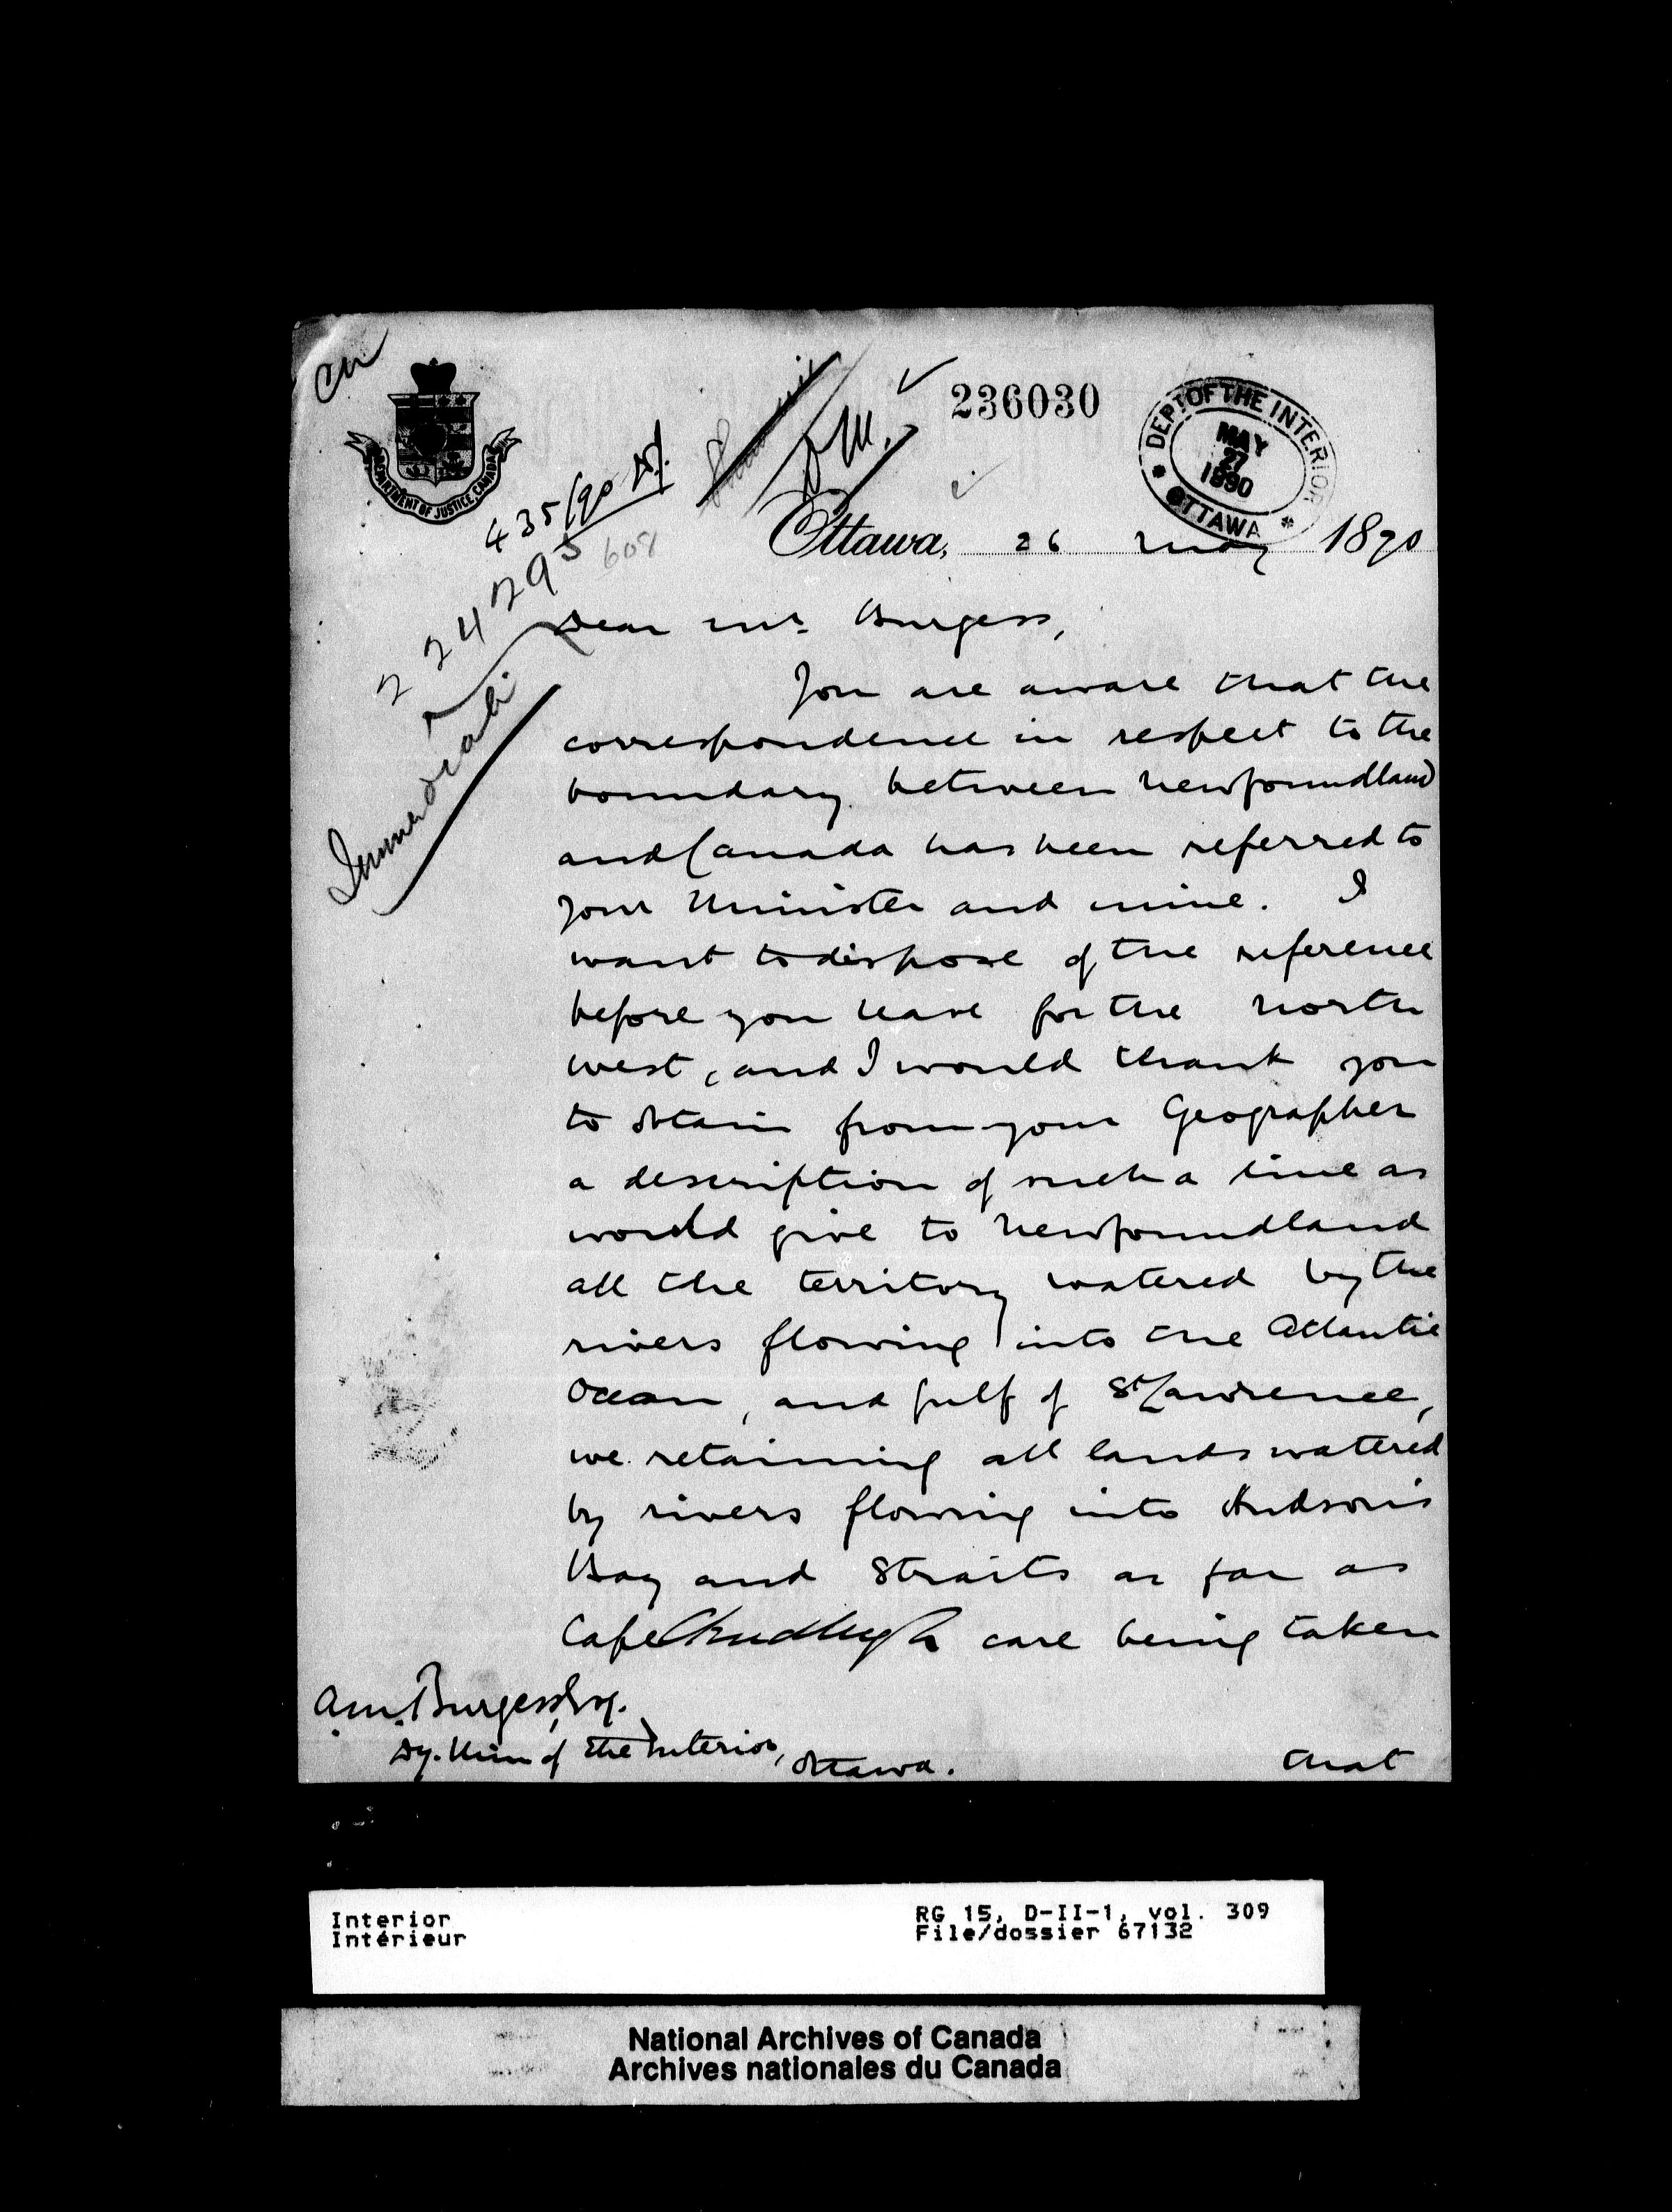 CW
DEPARTMENT OF JUSTICE, CANADA
236030
DEPT OF THE INTERIOR
MAY
27
1890
OTTAWA
435/90
224295
608
Immediate
Ottawa, 26 May 1890
Dear Mr. Burgess,
You are aware that the
correspondence in respect to the
boundary between Newfoundland
and Canada has been referred to
your Minister and mine. I
want to dispose of the reference
before you leave for the North
West, and I would thank you
to obtain from your Geographer
a description of such a line as
would give to Newfoundland
all the territory watered by the
rivers flowing into the Atlantic
Ocean, and gulf of St Lawrence,
we retaining all lands watered
by rivers flowing into Hudson's
Bay and Straits as far as
Cape Chudleigh care being taken
A.M. Burgess Esq.
Dy. Min of the Interior, Ottawa.
that
Interior
Intérieur
RG 15, D-II-1, vol. 309
File/dossier 67132
National Archives of Canada
Archives nationales du Canada